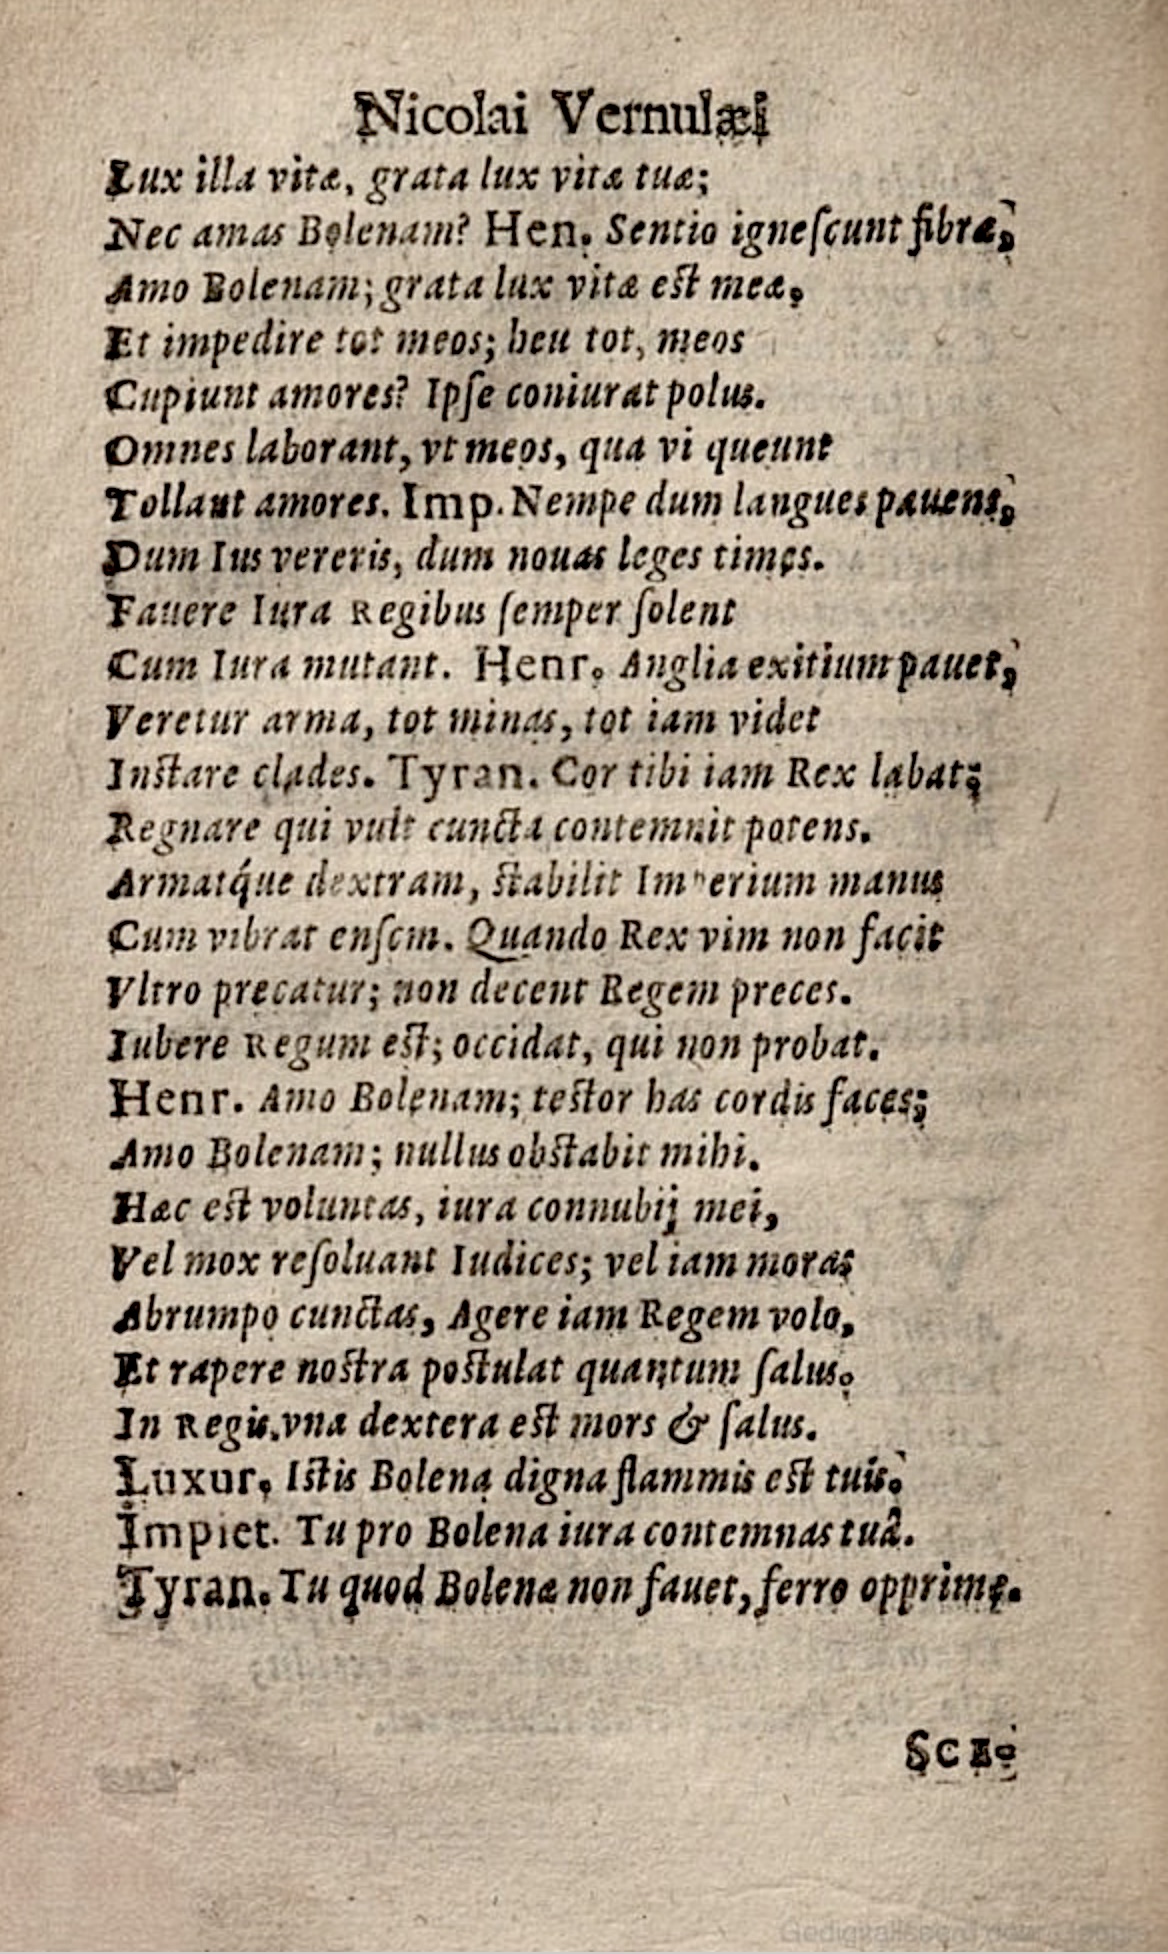 Nicolai Vernulæi
Lux illa vitæ, grata lux vitæ tuæ;
Nec amas Bolenam? Hen. Sentio igneſcunt fibræ,
Amo Bolenam; grata lux vitæ est meæ,
Et impedire tot meos; heu tot, meos
Cupiunt amores? Ipſe coniurat polus.
Omnes laborant, vt meos, qua vi queunt
Tollant amores. Imp. Nempe dum langues pauens,
Dum Ius vereris, dum nouas leges times.
Fauere Iura Regibus ſemper ſolent
Cum Iura mutant. Henr. Anglia exitium pauet,
Veretur arma, tot minas, tot iam videt
Instare clades. Tyran. Cor tibi iam Rex labat;
Regnare qui vult cuncta contemnit potens.
Armatq́ue dextram, stabilit Imperium manus
Cum vibrat enſem. Quando Rex vim non facit
Vltro precatur; non decent Regem preces.
Iubere Regum est; occidat, qui non probat.
Henr. Amo Bolenam; testor has cordis faces;
Amo Bolenam; nullus obstabit mihi.
Hæc est voluntas, iura connubij mei,
Vel mox reſoluant Iudices; vel iam moras
Abrumpo cunctas, Agere iam Regem volo,
Et rapere nostra postulat quantum ſalus.
In Regis.vna dextera est mors & ſalus.
Luxur. Istis Bolena digna flammis est tuis.
Impiet. Tu pro Bolena iura contemnas tuâ.
Tyran. Tu quod Bolenæ non fauet, ferro opprime.
SCE.